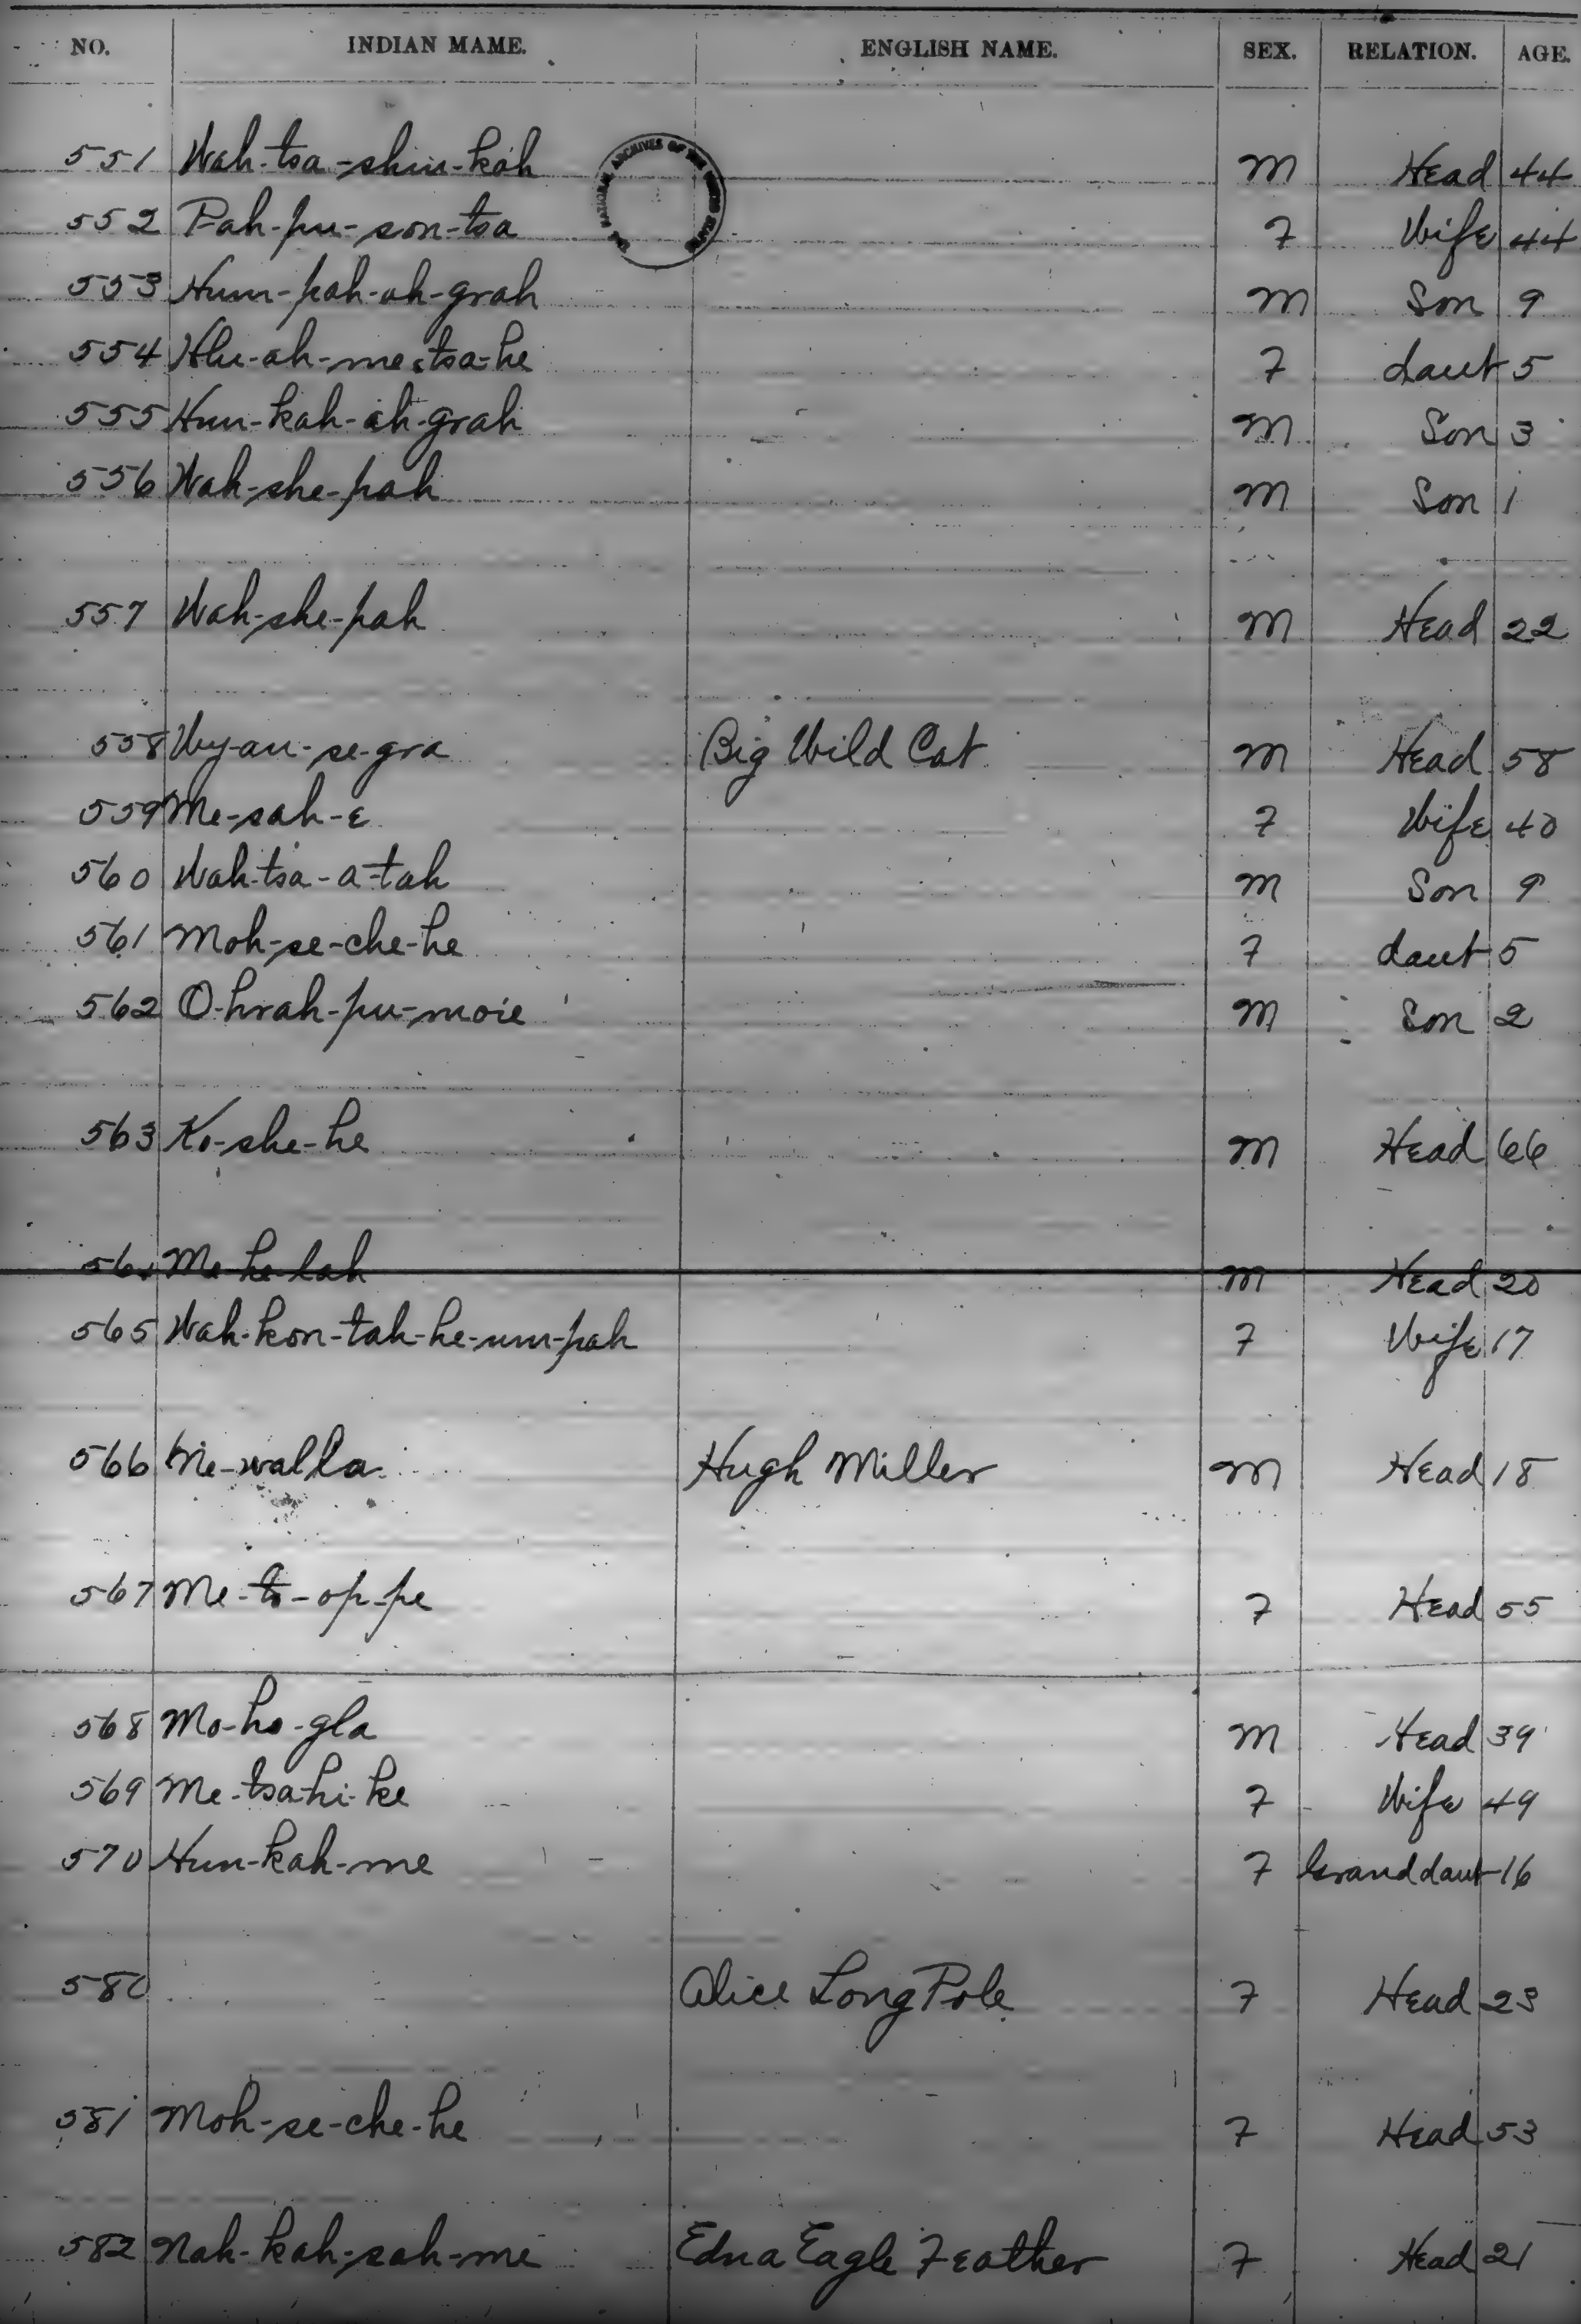 NO. INDIAN MAME. ENGLISH NAME. SEX. RELATION. AGE.
551 Wah-tsa-shin-kah M Head 44
552 Pah-pu-son-tsa F Wife 44
553 Hum-pah-ah-grah M Son 9
554 Hlu-ah-me-tsa-he F daut 5
555 Hun-kah-ah-grah M Son 3
556 Wah-she-pah M Son 1
557 Wah-she-pah M Head 22
558 Wy-au-se-gra Big Wild Cat M Head 58
559 Me-sah-e F Wife 40
560 Wah-tsa-a-tah M Son 9
561 Moh-se-che-he F daut 5
562 O-hrah-pu-moie M Son 2
563 Ko-she-he M Head 66
Me-he-lah M Head 20
565 Wah-kon-tah-he-um-pah F Wife 17
566 Ne-walla Hugh Miller M Head 18
567 Me-to-op-pe F Head 55
568 Mo-ho-gla M Head 39
569 Me-tsa-hi-ke F Wife 49
570 Hun-kah-me F Granddaut 16
580 Alice Long Pole F Head 23
581 Moh-se-che-he F Head 53
582 Nah-kah-sah-me Edna Eagle Feather F Head 21